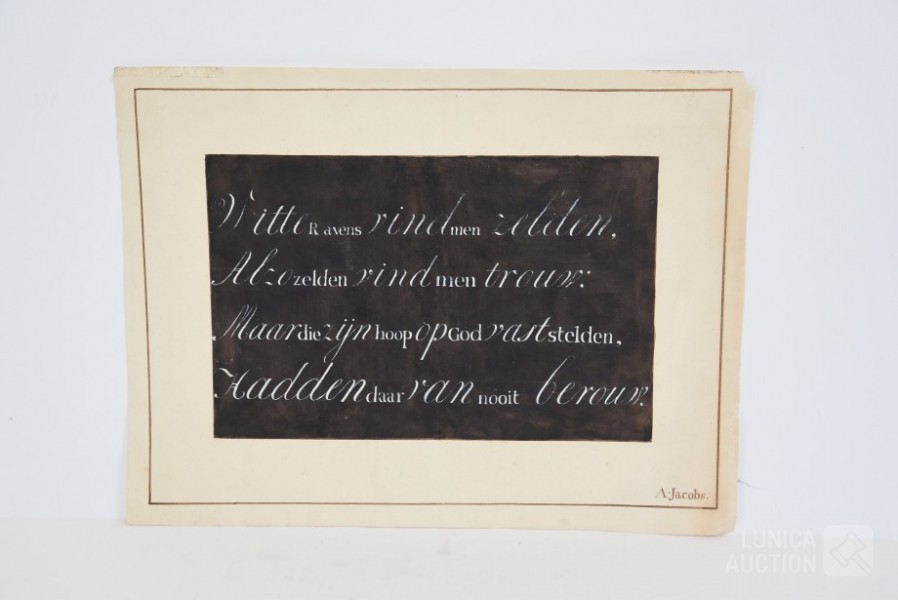 Witte Ravens vind men zelden,
Alzo zelden vind men trouw:
Maar die zijn hoop op God vast stelden,
Hadden daar van nooit berouw.
A. Jacobs.
LUNICA
AUCTION